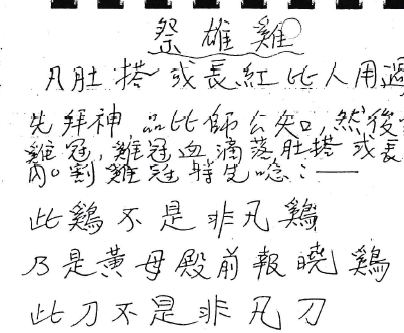 祭雄雞
凡肚搭或長紅比人用過
先拜神,品比師公知,然後
雞冠,雞冠血滴落肚搭或長
內。割雞冠時先唸:——
此鷄不是非凡鷄
乃是黃母殿前報曉鷄
此刀不是非凡刀